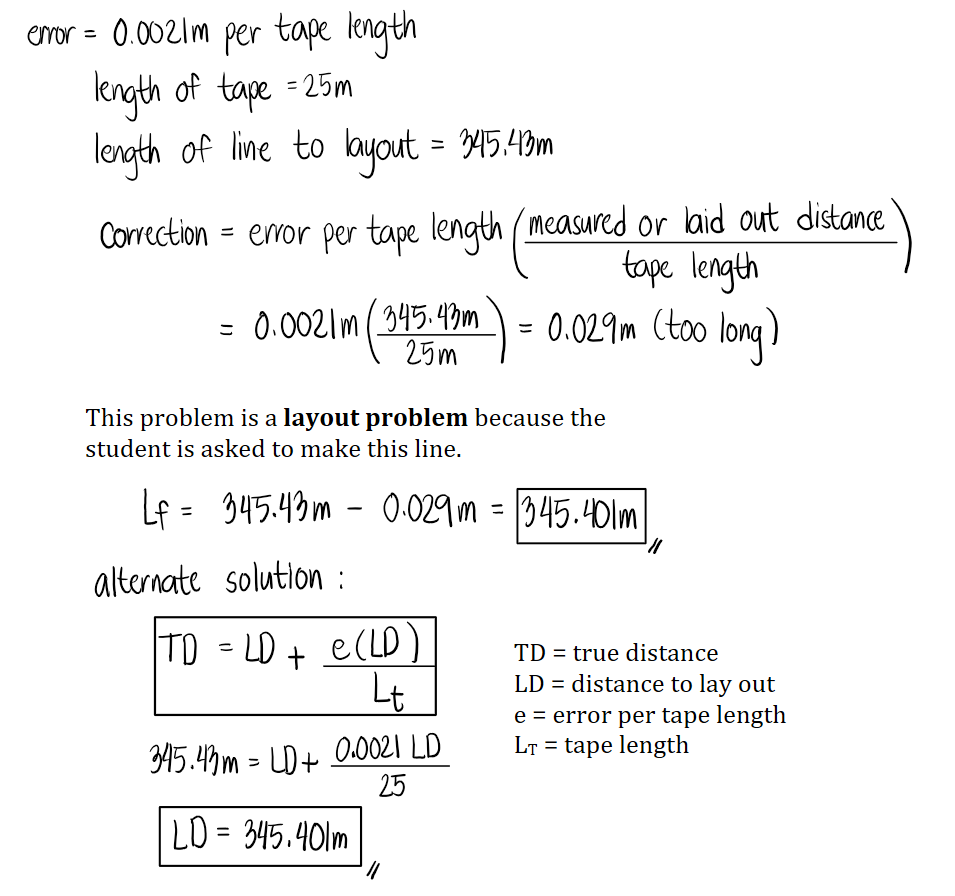 error = 0.0021m per tape length
length of tape = 25m
length of line to layout = 345.43m
Correction = error per tape length (measured or laid out distance / tape length)
= 0.0021m (345.43m / 25m) = 0.029m (too long)
This problem is a layout problem because the
student is asked to make this line.
Lf = 345.43m - 0.029m = 345.401m //
alternate solution :
TD = LD + e(LD) / Lt
TD = true distance
LD = distance to lay out
e = error per tape length
LT = tape length
345.43m = LD + 0.0021 LD / 25
LD = 345.401m //